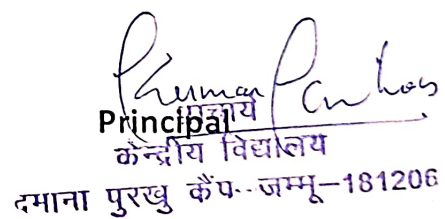 प्राचार्य
Principal
केन्द्रीय विद्यालय
दमाना पुरखु कैंप जम्मू-181206